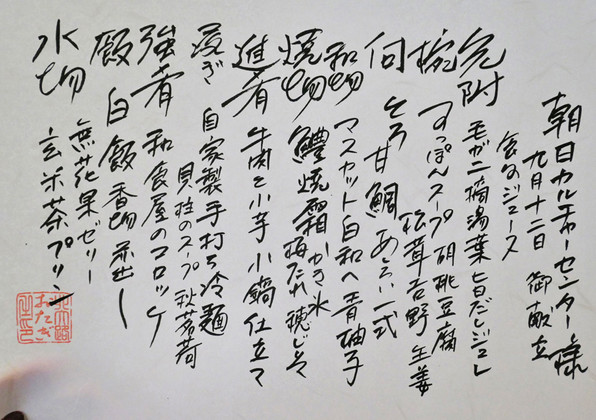 朝日カルチャーセンター様
九月十二日 御献立
食前ジュース
先附 毛ガニ 湯葉 旨だしジュレ
椀 すっぽんスープ 胡桃豆腐
松茸 吉野 生姜
向 とろ 甘鯛 あしらい一式
和物 マスカット白和へ 青柚子
焼物 鱧焼霜 かき氷
梅だれ 穂じそ
進肴 牛肉と小芋 小鍋仕立て
凌ぎ 自家製手打ち冷麺
貝柱のスープ 秋茗荷
強肴 和食屋のコロッケ
飯 白飯 香物 赤出し
水物 無花果ゼリー
玄米茶プリン
おたぎ